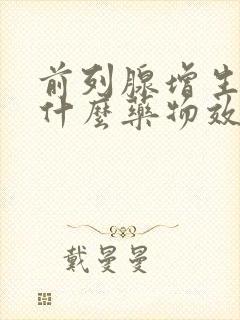 前列腺增生
什麼藥物效
戴曼曼